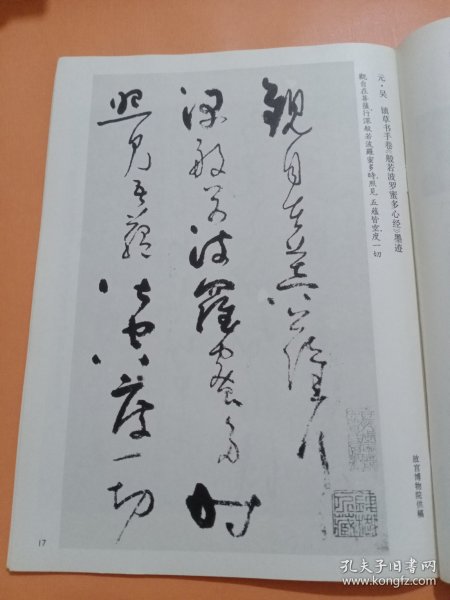 元·吴 镇草书手卷《般若波罗蜜多心经》墨迹
觀自在菩薩,行深般若波羅蜜多時,照見 五蘊皆空,度一切
觀自在菩薩行
深般若波羅蜜多時
照見五蘊皆空度一切
故宫博物院供稿
17
孔夫子旧书网
www.kongfz.com